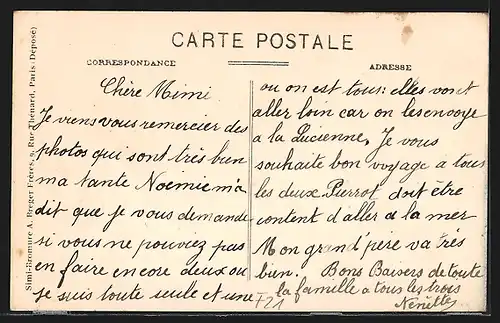 CARTE POSTALE
CORRESPONDANCE
ADRESSE
Simi-Bromure A. Breger Frères, 9, Rue Thénard, Paris (Déposé)
Chère Mimi
Je viens vous remercier des
photos qui sont très bien
ma tante Noemie m'a
dit que je vous demande
si vous ne pouviez pas
en faire encore deux ou
je suis toute seule et une
ou on est tous: elles vont
aller loin car on les envoye
a la Lucienne, Je vous
souhaite bon voyage a tous
les deux Pierrot doit être
content d'aller a la mer
Mon grand'père va très
bien. Bons Baisers de toute
la famelle a tous les trois
F21